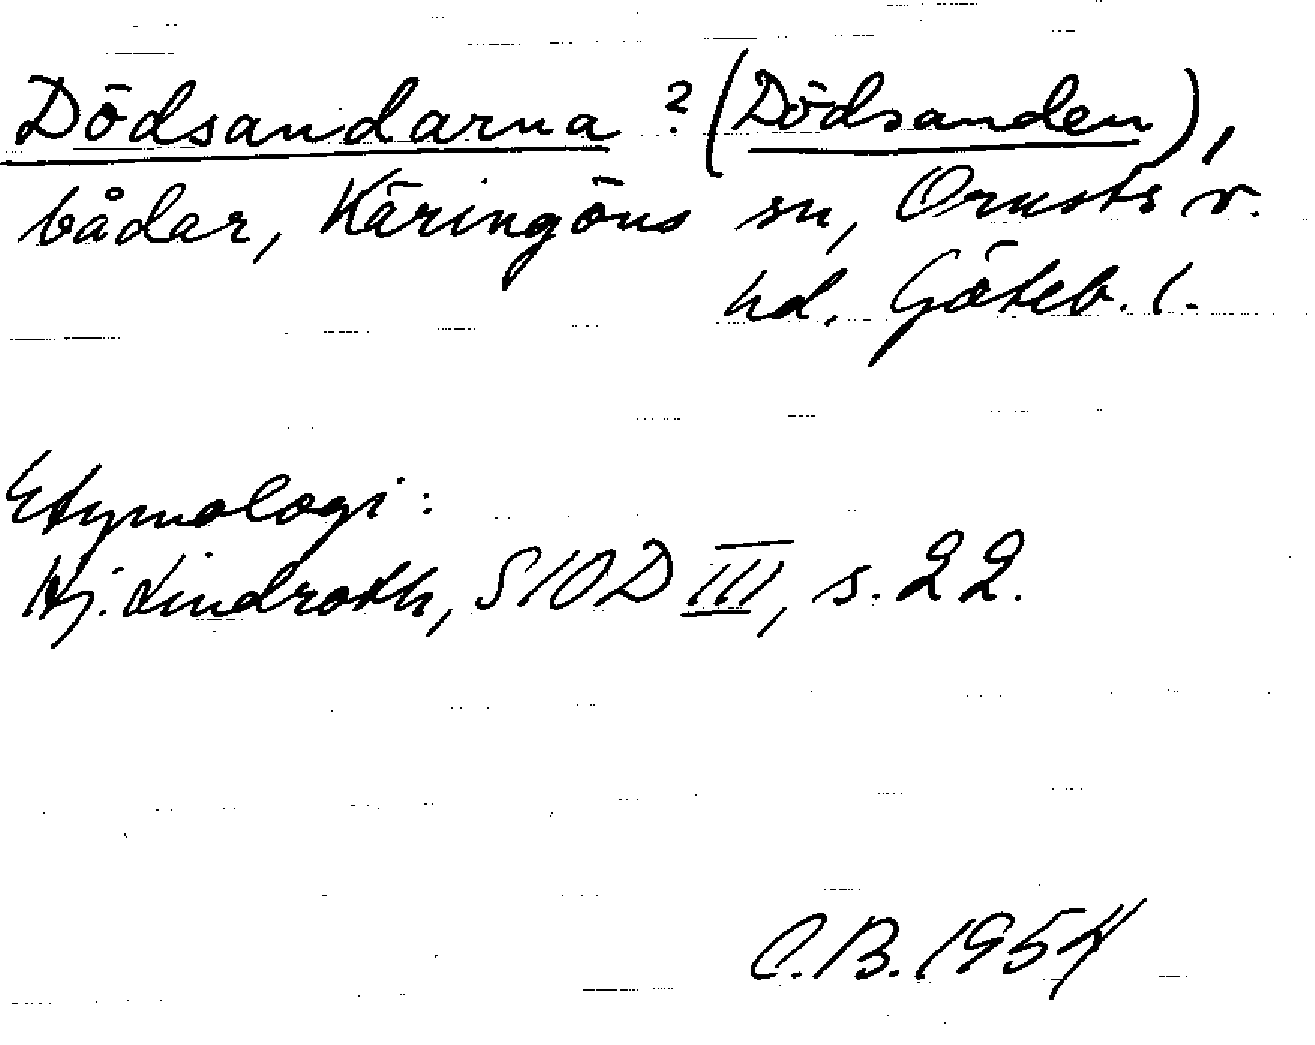 Dödsandarna ? (Dödsanden),
bådar, Käringöns sn, Orusts v.
hd. Göteb. l.
Etymologi:
Hj. Lindroth, SIOD III, s. 22.
C.B. 1954